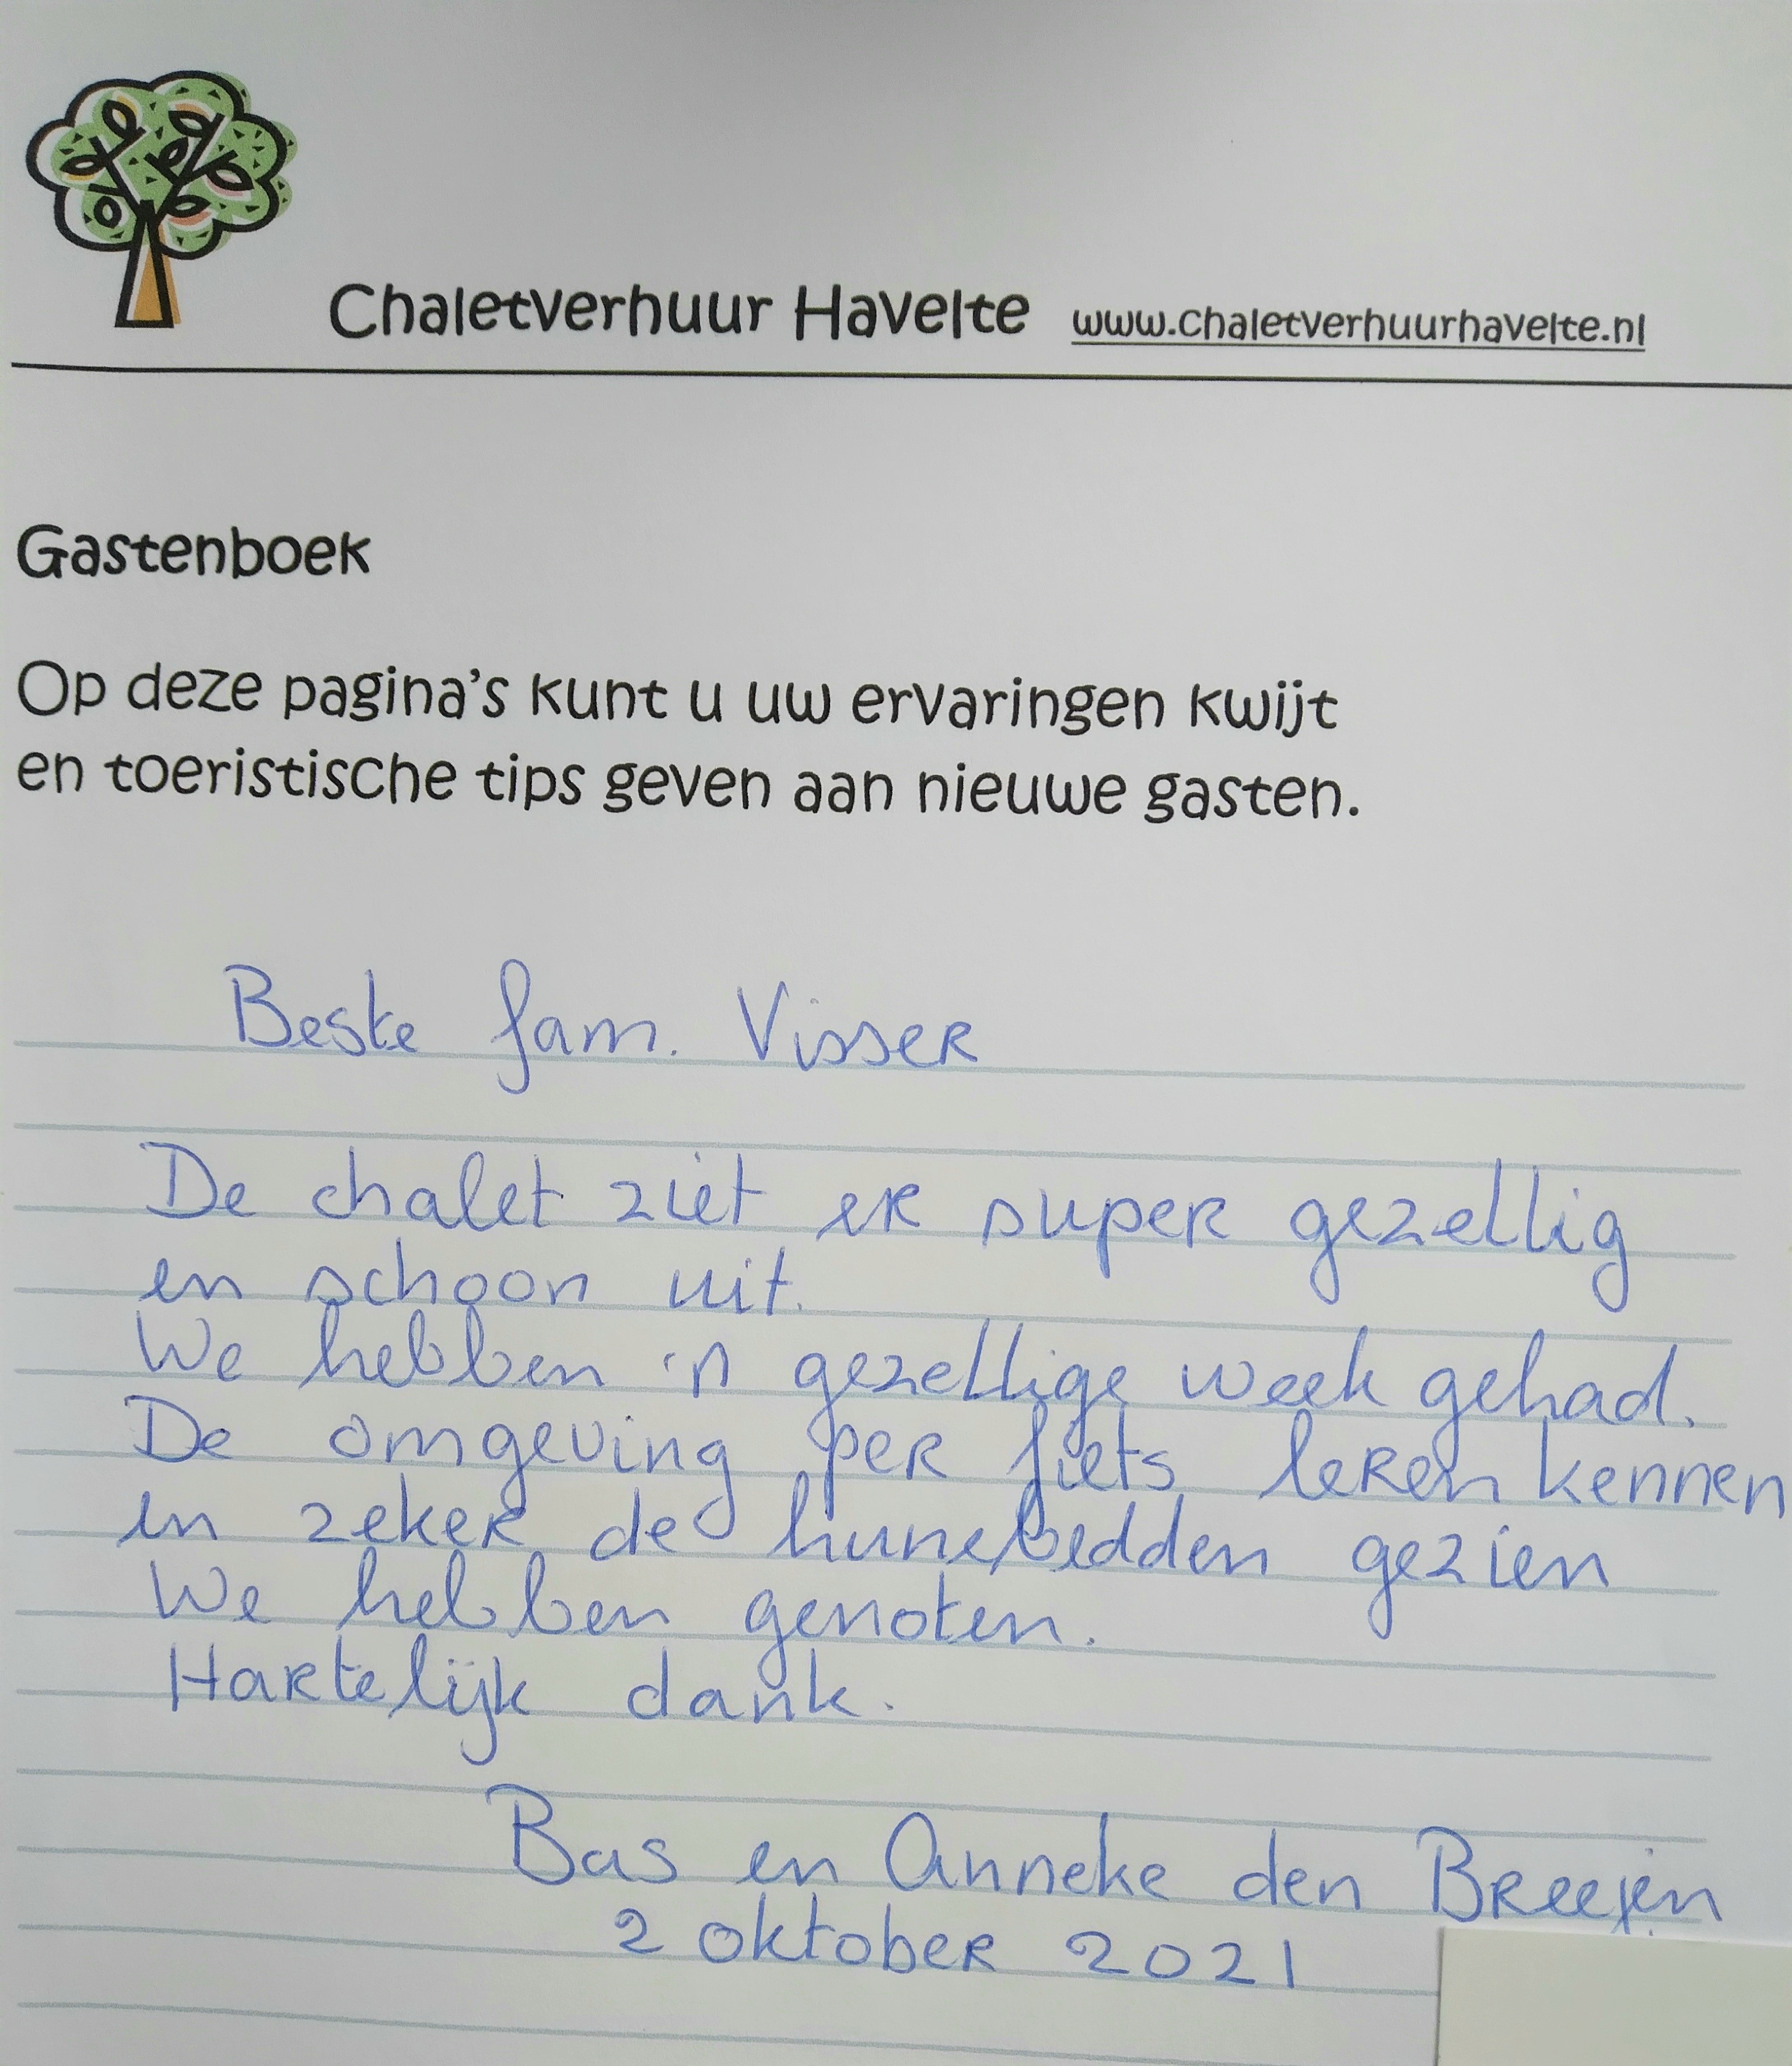 Chaletverhuur Havelte www.chaletverhuurhavelte.nl
Gastenboek
Op deze pagina's kunt u uw ervaringen kwijt
en toeristische tips geven aan nieuwe gasten.
Beste fam. Visser
De chalet ziet er super gezellig
en schoon uit.
We hebben 'n gezellige week gehad.
De omgeving per fiets leren kennen
en zeker de hunebedden gezien
We hebben genoten.
Hartelijk dank.
Bas en Anneke den Breejen
2 oktober 2021